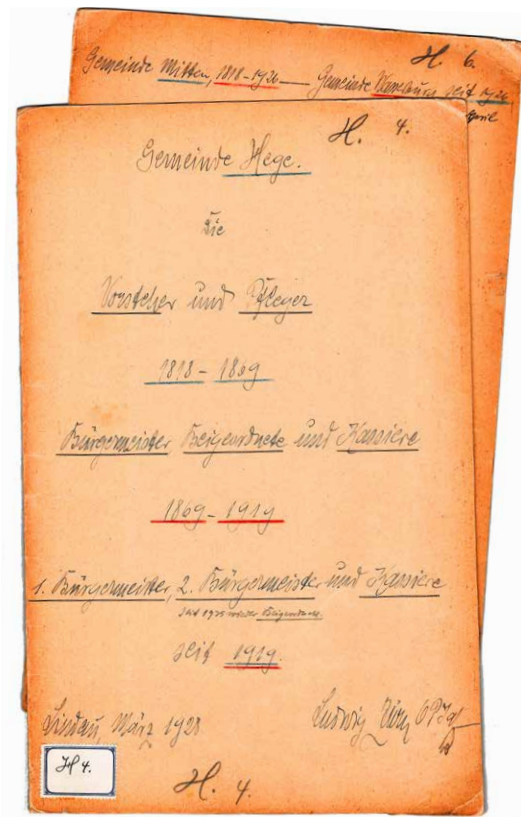 H. 6.
Gemeinde Mitten, 1818-1926 — Gemeinde Wasserburg seit 1926
April
H. 4.
Gemeinde Hege.
Die
Vorsteher und Pfleger
1818 - 1869
Bürgermeister, Beigeordnete und Kassiere
1869 - 1919
1. Bürgermeister, 2. Bürgermeister und Kassiere
seit 1919.
Lindau, März 1928
Ludwig
H 4.
H. 4.